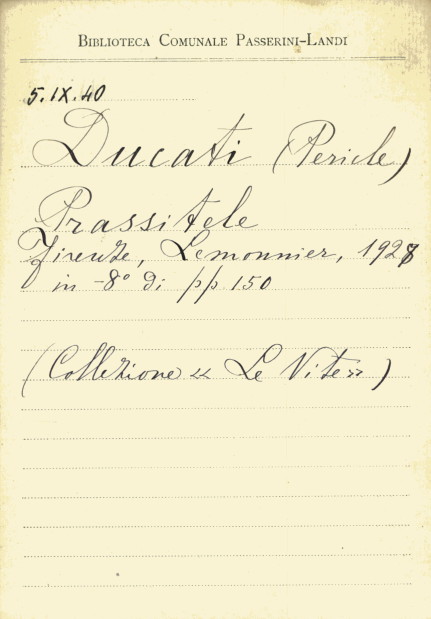 BIBLIOTECA COMUNALE PASSERINI-LANDI
5.IX.40
Ducati (Pericle)
Prassitele
Firenze, Lemonnier, 1928
in -8° di pp 150
(Collezione « Le Vite»)